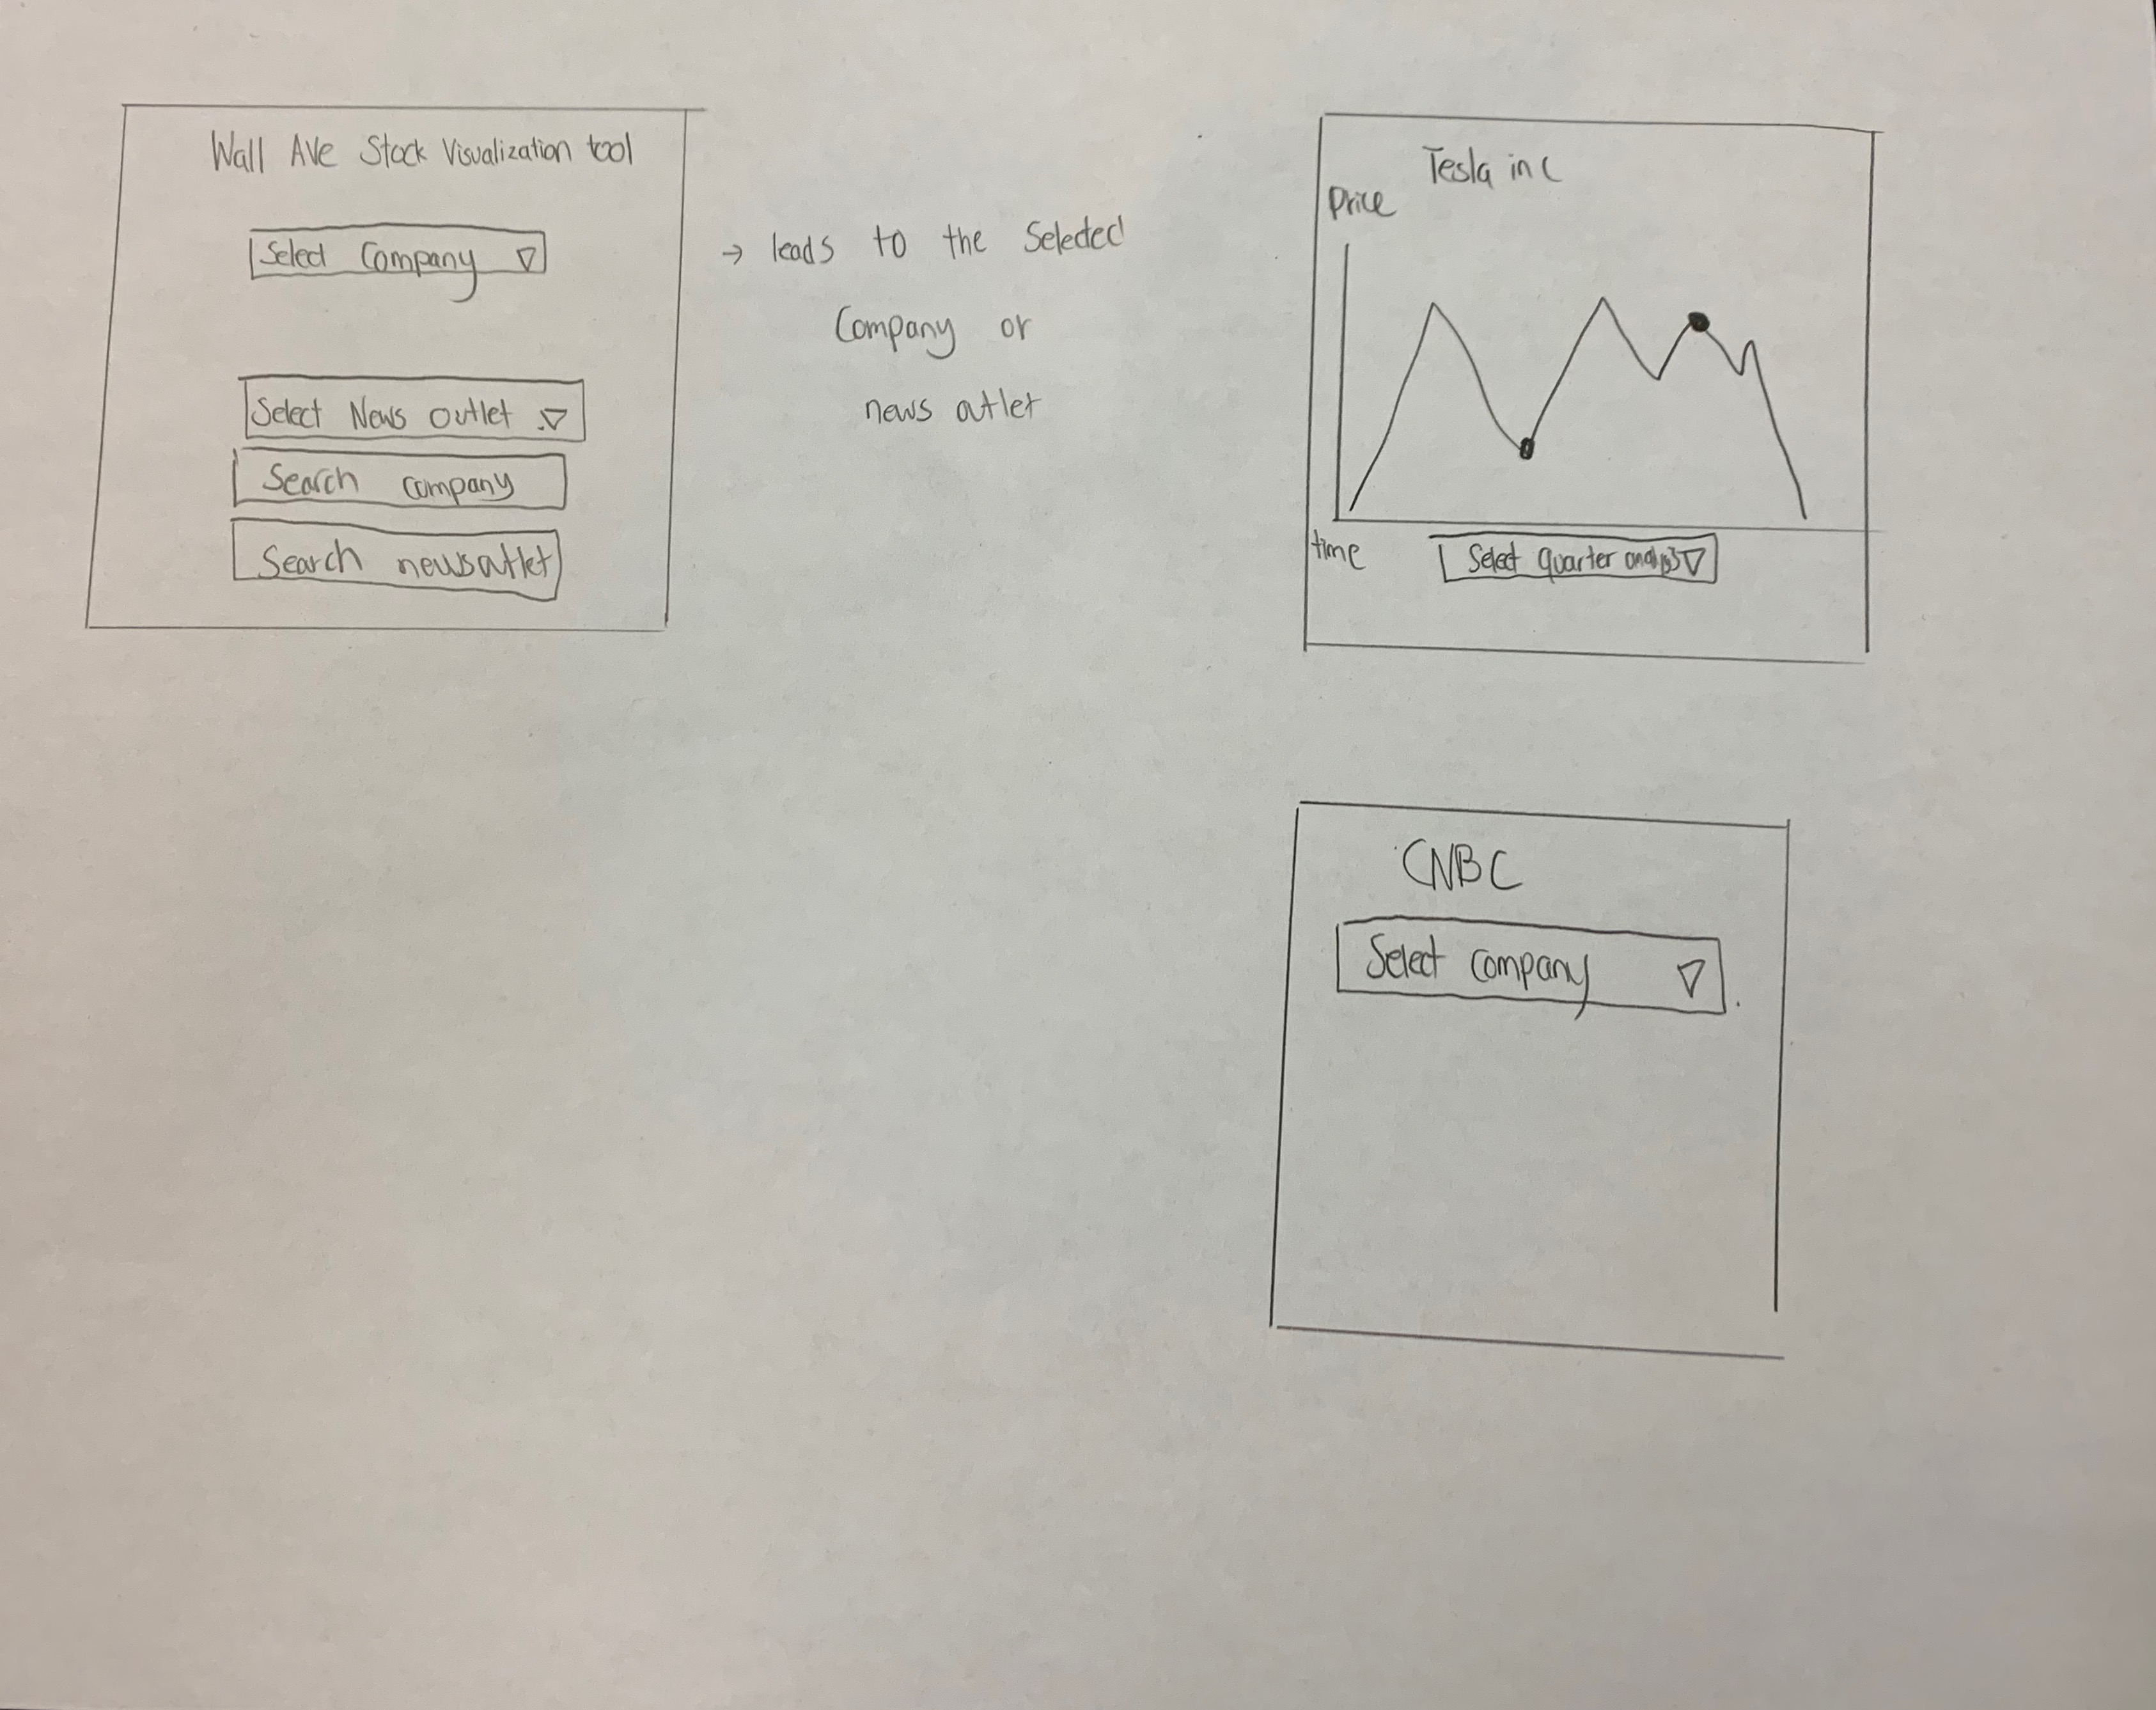 Wall Ave Stock Visualization tool
Select Company
Select News outlet
Search company
Search newsoutlet
→ leads to the selected
Company or
news outlet
Tesla inc
Price
time
Select quarter analysis
CNBC
Select company